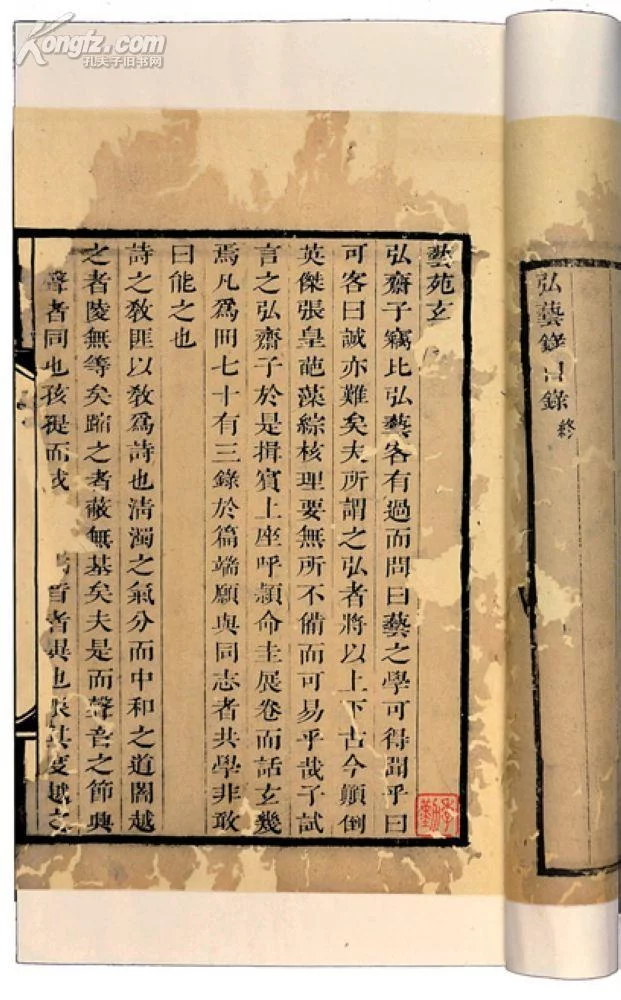 Kongfz.com
孔夫子旧书网
弘藝錄目錄終
藝苑玄
弘齋子竊比弘藝客有過而問曰藝之學可得聞乎曰
可客曰誠亦難矣夫所謂之弘者將以上下古今顛倒
英傑張皇葩藻綜核理要無所不備而可易乎哉子試
言之弘齋子於是揖賓上座呼潁命圭展卷而話玄幾
焉凡爲冊七十有三錄於篇端願與同志者共學非敢
曰能之也
詩之敎匪以敎爲詩也清濁之氣分而中和之道闇越
之者陵無等矣之者蔽無基矣夫是而聲音之節典
聲者同也孩禔而或音者異也其越之